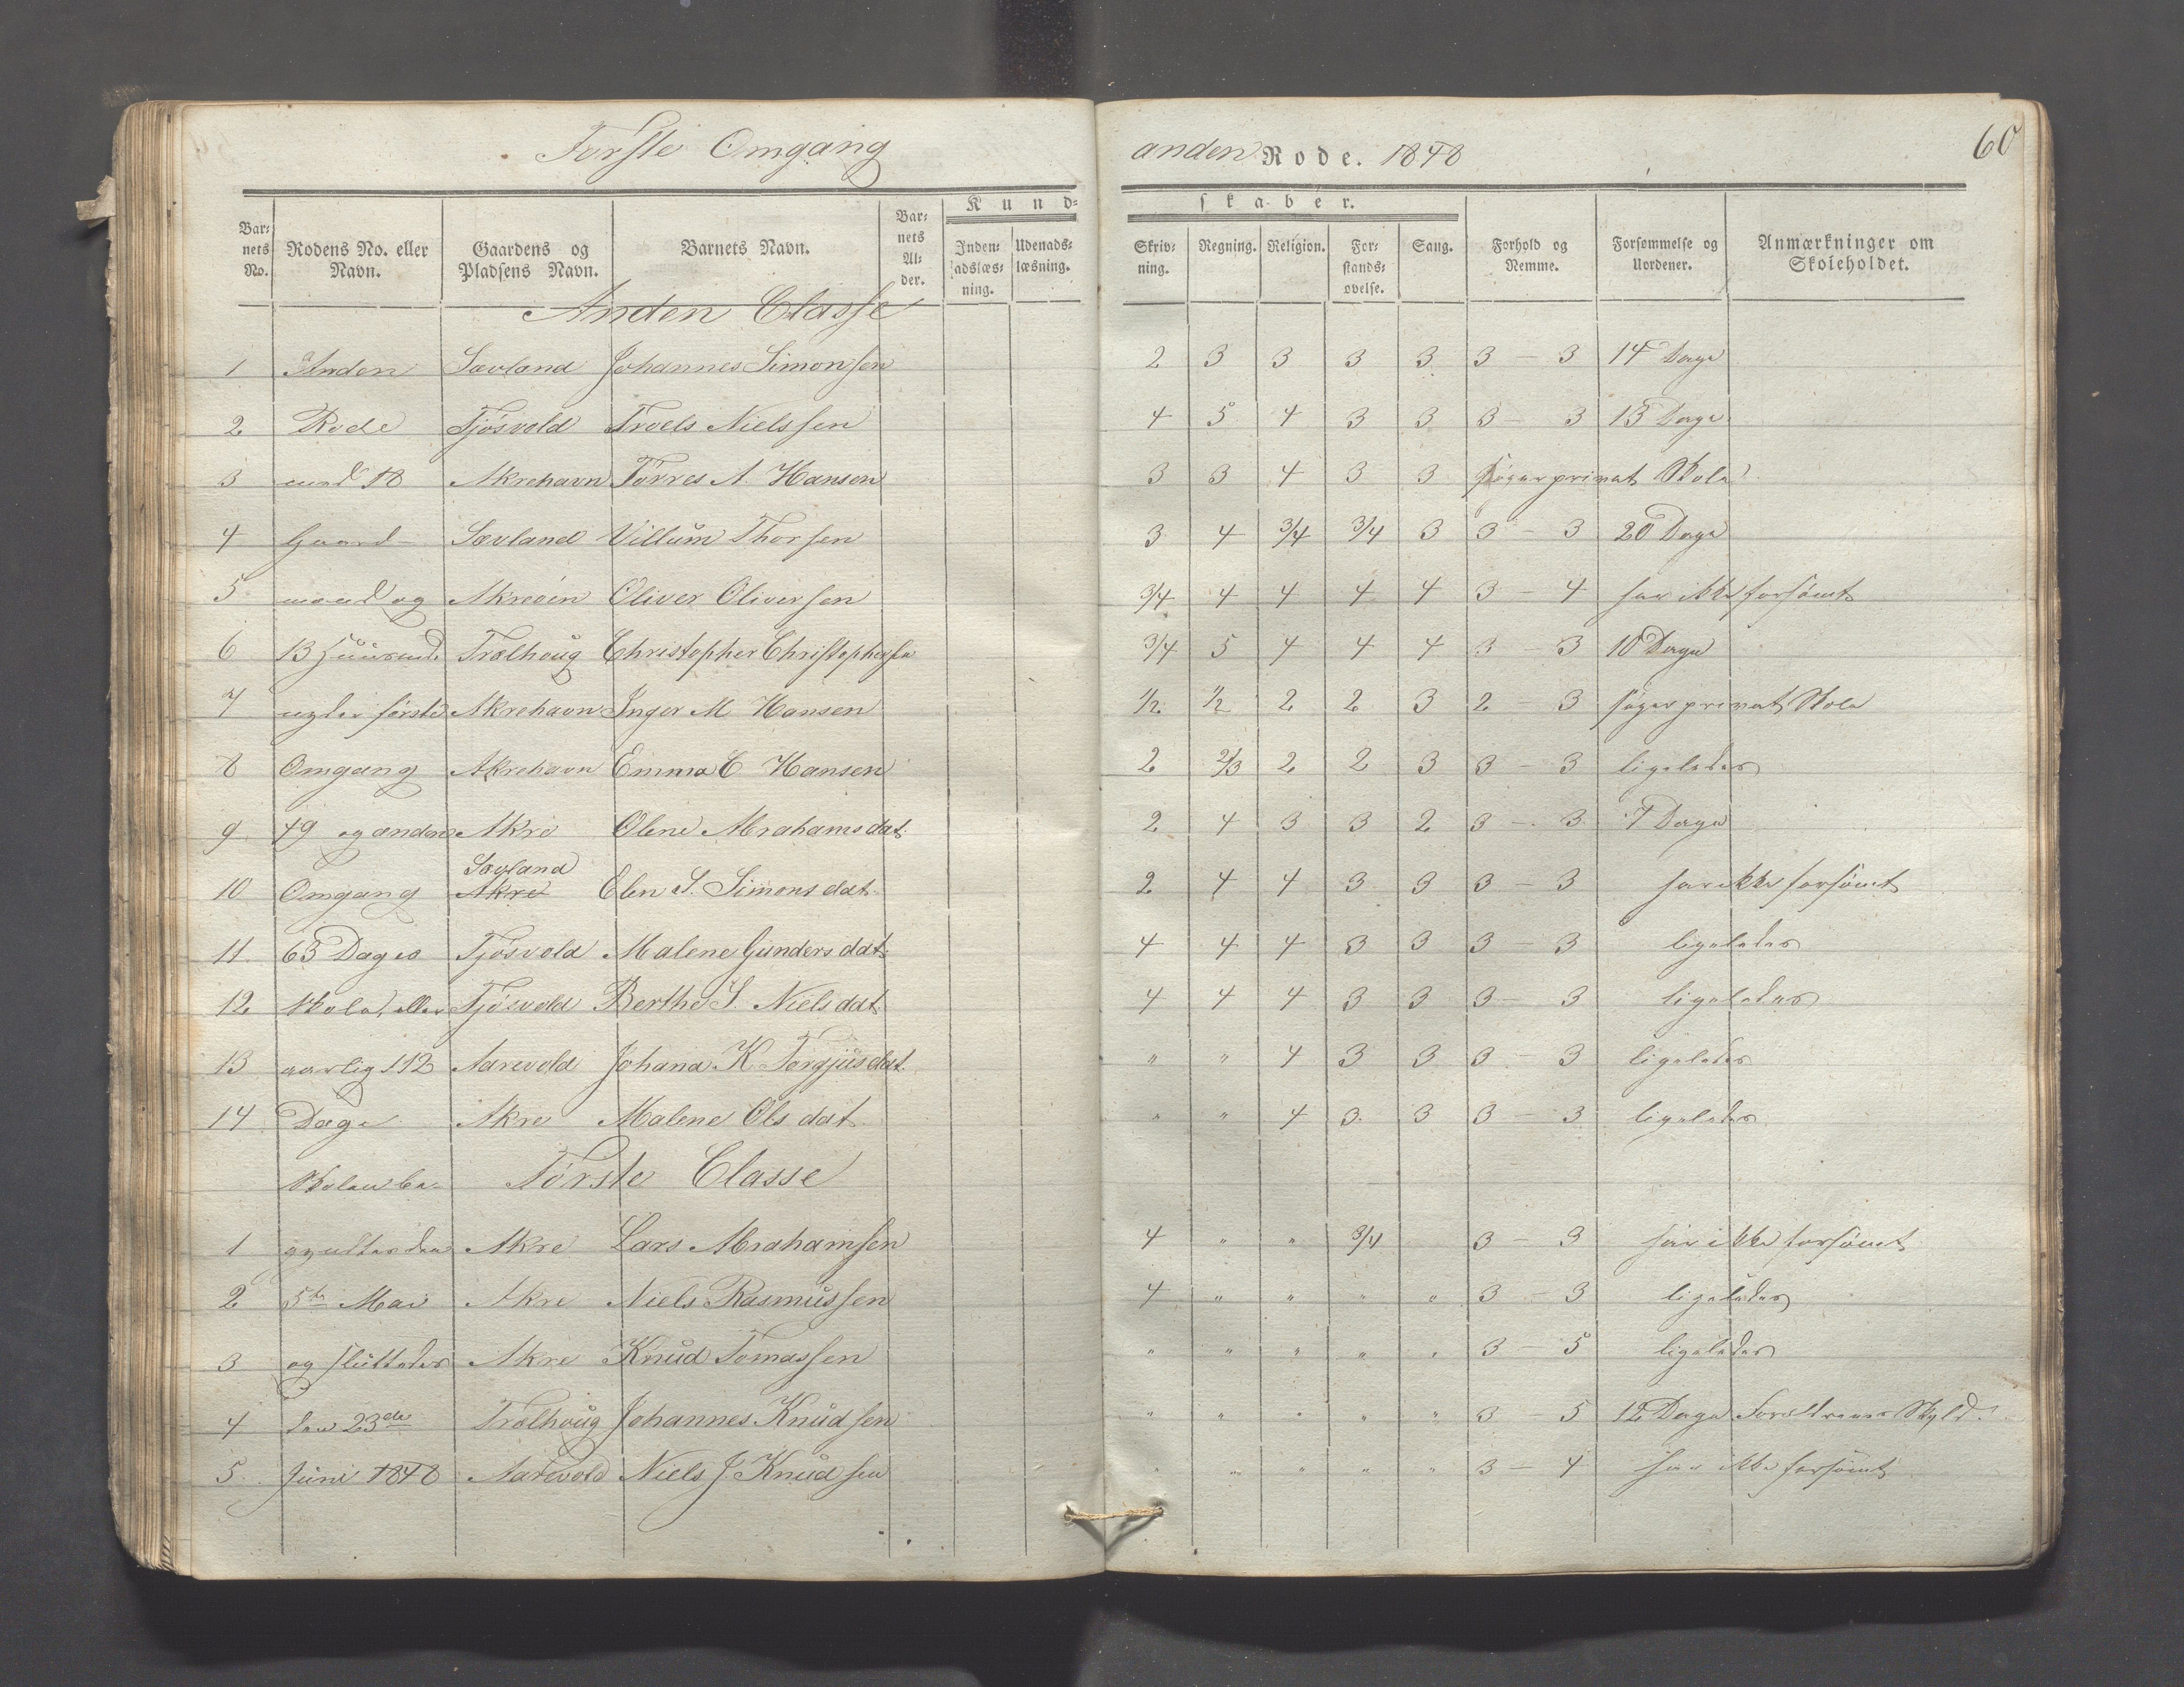 Første Omgang anden Rode. 1848 60
Kundskaber.
Barnets No. Rodens No. eller Navn. Gaardens og Pladsens Navn. Barnets Navn. Barnets Alder. Indenadslæsning. Udenadslæsning. Skrivning. Regning. Religion. Forstandsøvelse. Sang. Forhold og Nemme. Forsømmelse og Uordener. Anmærkninger om Skoleholdet.
Anden Classe
1 Anden Sævland Johannes Simonsen 2 3 3 3 3 3 – 3 14 Dage
2 Rode Tjøsvold Troels Nielssen 4 5 4 3 3 3 – 3 13 Dage
3 med 18 Akrehavn Tørres A. Hansen 3 3 4 3 3 søger privat Skole
4 Gaard- Sævland Villum Thorsen 3 4 3/4 3/4 3 3 – 3 20 Dage
5 mænd og Akreøen Oliver Oliversen 3/4 4 4 4 4 3 – 4 har ikke forsømt
6 13 Huusmd. Trælhoug Christopher Christophersen 3/4 5 4 4 4 3 – 3 10 Dage
7 første Akrehavn Inger M Hansen 1/2 1/2 2 2 3 2 – 3 søger privat Skole
8 Omgang Akrehavn Emma C Hansen 2 2/3 2 2 3 3 – 3 ligeledes
9 49 og anden Akre Olene Abrahamsdat. 2 4 3 3 2 3 – 3 7 Dage
10 Omgang Sævland Akre Elen S. Simonsdat. 2 4 4 3 3 3 – 3 har ikke forsømt
11 63 Dages Tjøsvold Malene Gundersdat. 4 4 4 3 3 3 – 3 ligeledes
12 Skole, eller Tjøsvold Berthe S. Nielsdat. 4 4 4 3 3 3 – 3 ligeledes
13 aarlig 112 Aarevold Johana K Torgjusdat. " " 4 3 3 3 – 3 ligeledes
14 Dage Akre Malene Olsdat. " " 4 3 3 3 – 3 ligeledes
Skolen be- Første Classe
1 gyndte den Akre Lars Abrahamsen 4 " " 3/4 3 – 3 har ikke forsømt
2 5te Mai Akre Niels Rasmussen 4 " " " " 3 – 3 ligeledes
3 og sluttedes Akre Knud Tomassen " " " " " 3 – 5 ligeledes
4 den 23de Trælhoug Johannes Knudsen " " " " " 3 5 12 Dage Forældrenes Skyld.
5 Juni 1848 Aarevold Niels J Knudsen " " " " " 3 – 4 har ikke forsømt